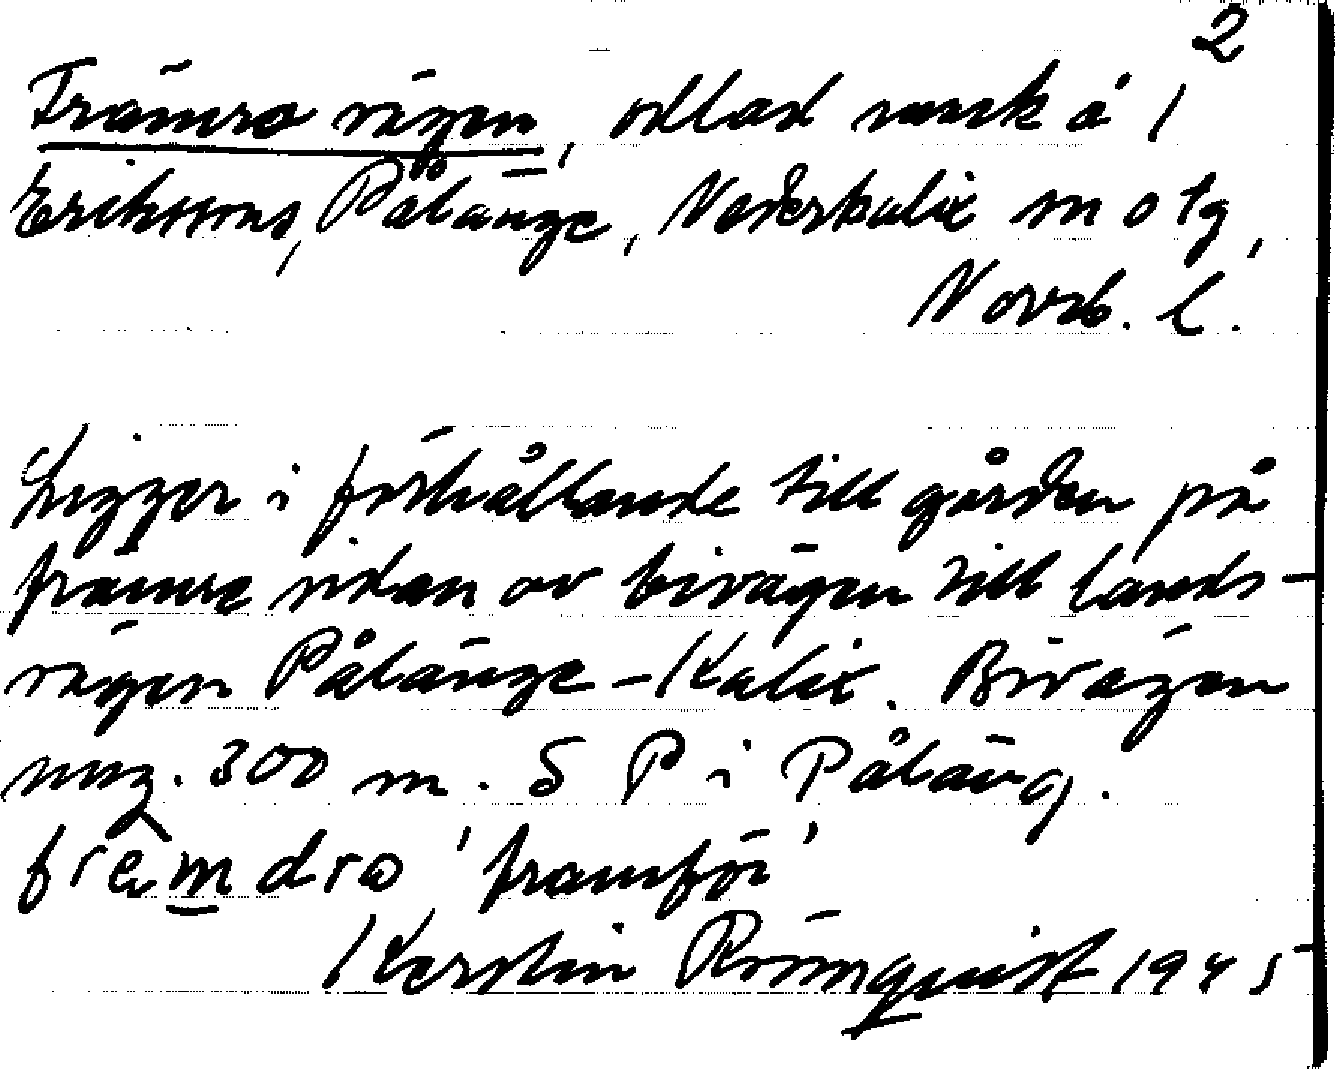 2
Främre vägen, odlad mark å 1
Erikssons, Pålänge, Nederkalix sn o tg,
Norrb. l.
Ligger i förhållande till gården på
främre sidan av bivägen till lands-
vägen Pålänge-Kalix. Bivägen
300 m. S P i Påläng.
'framför'
Kerstin Rönnquist 1945